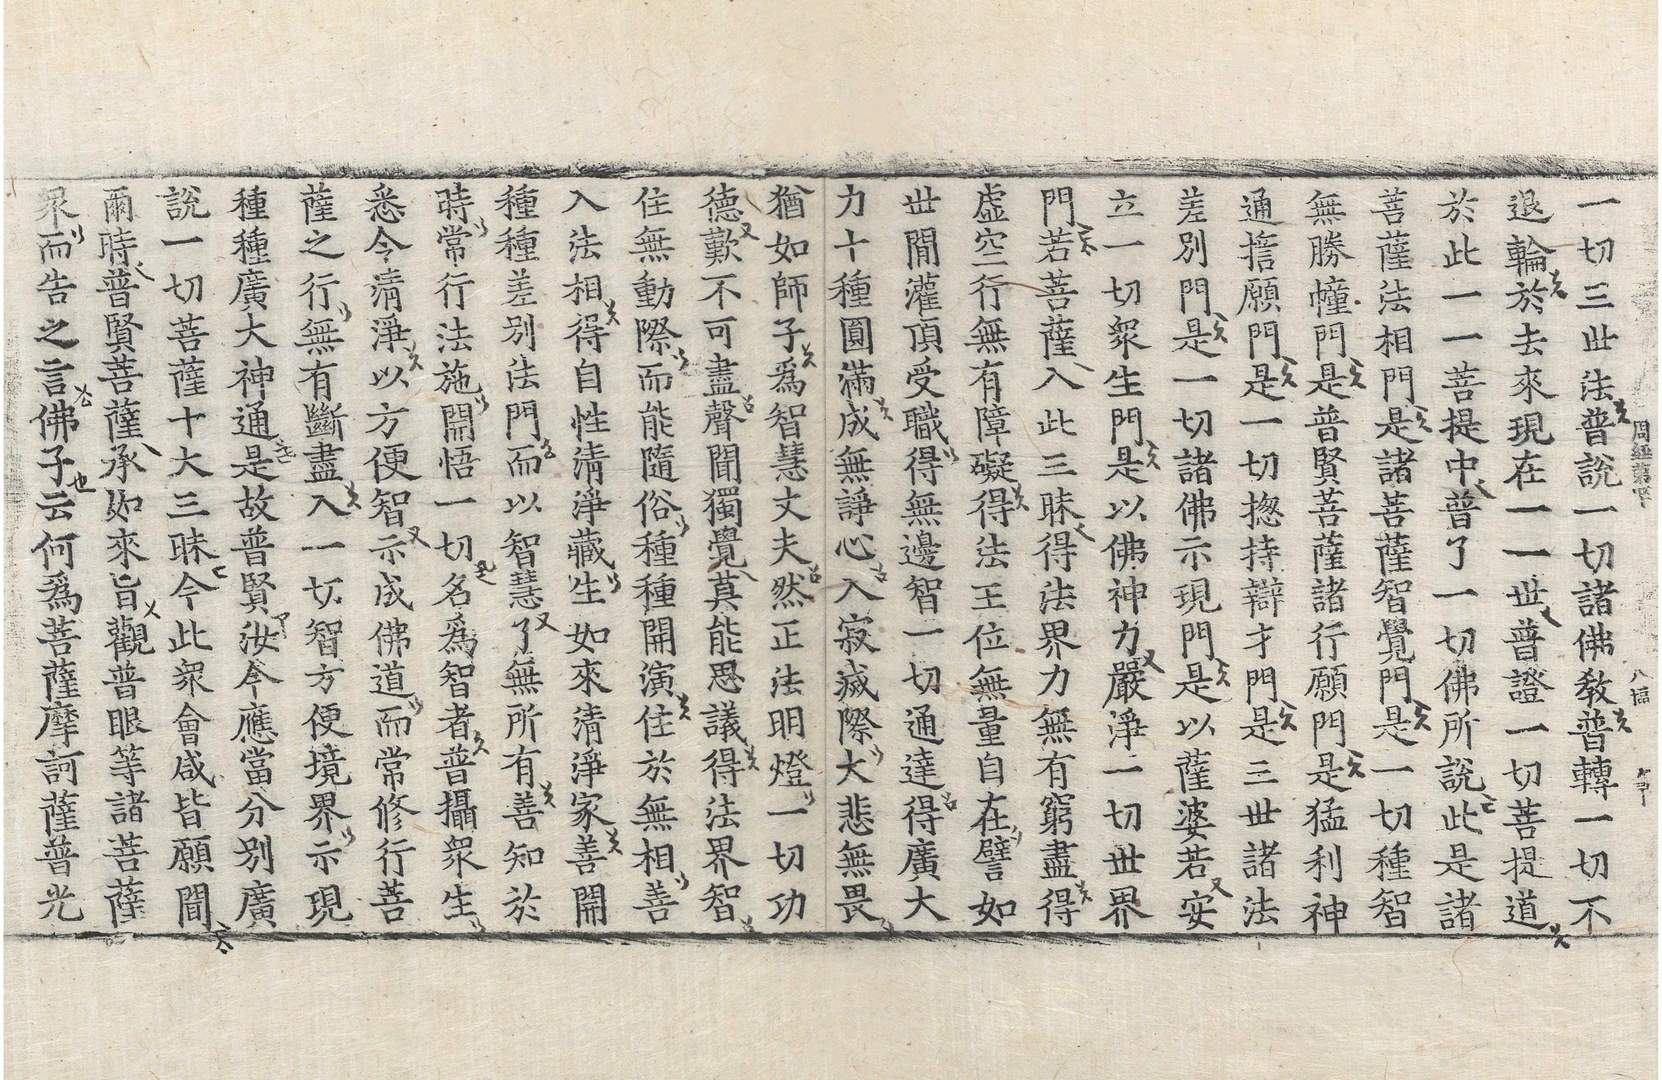 一切三世法普說一切諸佛教普轉一切不
退輪於去來現在一一世普證一切菩提道
於此一一菩提中普了一切佛所說此是諸
菩薩法相門是諸菩薩智覺門是一切種智
無勝幢門是普賢菩薩諸行願門是猛利神
通擔願門是一切揔持辯才門是三世諸法
差別門是一切諸佛示現門是以薩婆若安
立一切衆生門是以佛神力嚴淨一切世界
門若菩薩入此三昧得法界力無有窮盡得
虛空行無有障礙得法王位無量自在譬如
世間灌頂受職得無邊智一切通達得廣大
力十種圓滿成無諍心入寂滅際大悲無畏
猶如師子爲智慧丈夫然正法明燈一切功
德歎不可盡聲聞獨覺莫能思議得法界智
住無動際而能隨俗種種開演住於無相善
入法相得自性清淨藏生如來清淨家善開
種種差別法門而以智慧了無所有善知於
時常行法施開悟一切名爲智者普攝衆生
悉令清淨以方便智示成佛道而常修行菩
薩之行無有斷盡入一切智方便境界示現
種種廣大神通是故普賢汝今應當分別廣
說一切菩薩十大三昧今此衆會咸皆願聞
爾時普賢菩薩承如來旨觀普眼等諸菩薩
衆而告之言佛子云何爲菩薩摩訶薩普光